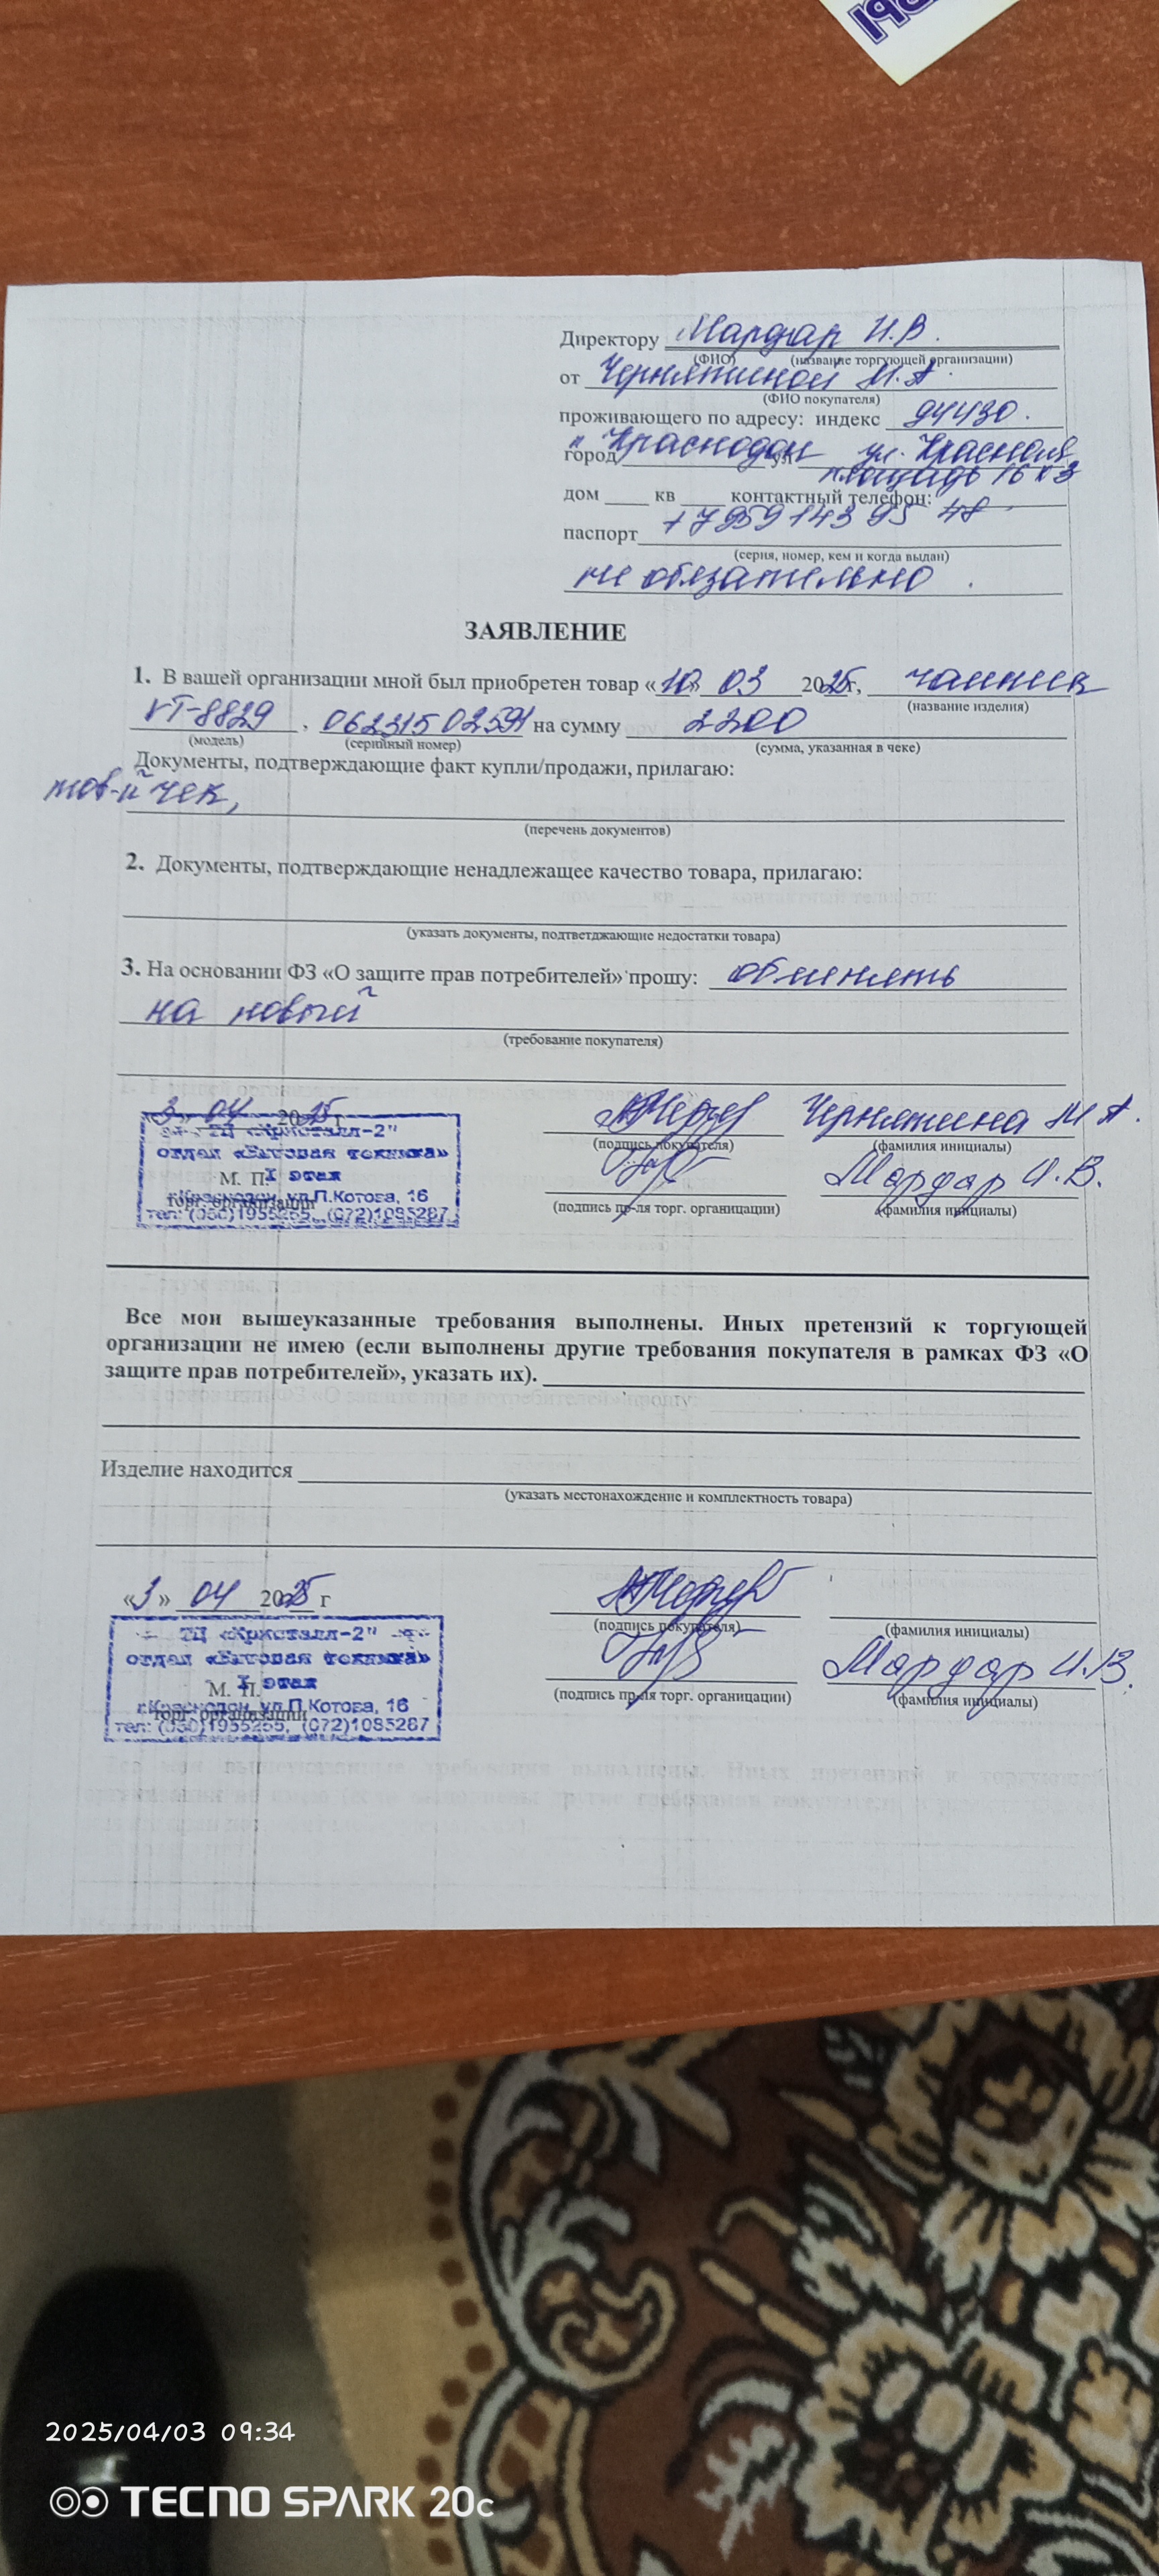 Директору Мардар И.В.
(ФИО) (название торгующей организации)
от Чернятиной М.А.
(ФИО покупателя)
проживающего по адресу: индекс 94430.
город г. Краснодон ул ул. Красная
площадь 16 к 3
дом ____ кв ____ контактный телефон:
паспорт +7959143 95 48
(серия, номер, кем и когда выдан)
не обязательно.
ЗАЯВЛЕНИЕ
1. В вашей организации мной был приобретен товар «10» 03 2025г, чайник
(название изделия)
VT-8829, 06231502591 на сумму 2200
(модель) (серийный номер) (сумма, указанная в чеке)
Документы, подтверждающие факт купли/продажи, прилагаю:
тов-й чек,
(перечень документов)
2. Документы, подтверждающие ненадлежащее качество товара, прилагаю:
(указать документы, подтветджающие недостатки товара)
3. На основании ФЗ «О защите прав потребителей» прошу: обменять
на новый
(требование покупателя)
«3» 04 2025 г
Чернятина М.А.
(подпись покупателя) (фамилия инициалы)
Мардар И.В.
(подпись пр-ля торг. органицации) (фамилия инициалы)
ТЦ «Кристалл-2"
отдел «Бытовая техника»
М. П. I этаж
г.Краснодон ул.П.Котова, 16
торг. организации
тел: (050)1955255, (072)1085287
Все мои вышеуказанные требования выполнены. Иных претензий к торгующей
организации не имею (если выполнены другие требования покупателя в рамках ФЗ «О
защите прав потребителей», указать их).
Изделие находится
(указать местонахождение и комплектность товара)
«3» 04 2025 г
(подпись покупателя) (фамилия инициалы)
Мардар И.В.
(подпись пр-ля торг. органицации) (фамилия инициалы)
ТЦ «Кристалл-2"
отдел «Бытовая техника»
М. П. I этаж
г.Краснодон ул.П.Котова, 16
торг. организации
тел: (050)1955255, (072)1085287
2025/04/03 09:34
TECNO SPARK 20c